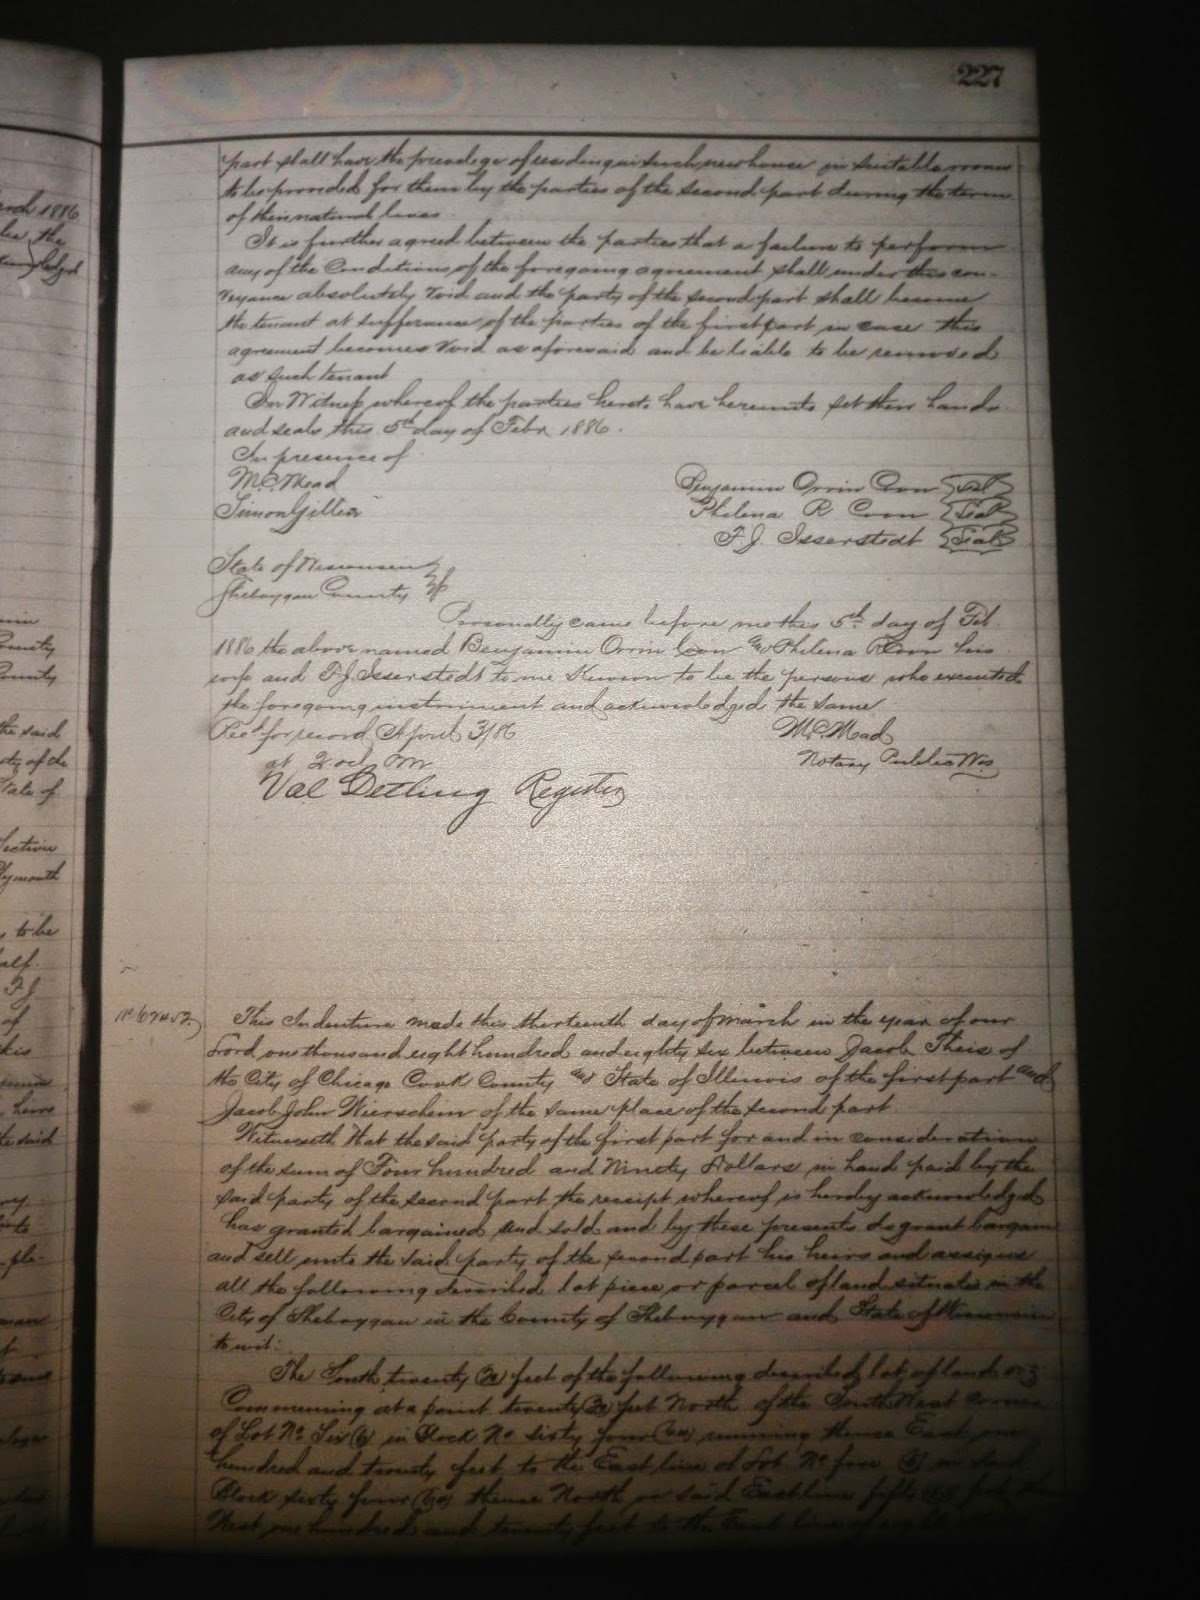 227
part shall have the priveledge of residing in such new house in suitable rooms
to be provided for them by the parties of the second part during the term
of their natural lives.
It is further agreed between the parties that a failure to perform
any of the Conditions of the foregoing agreement shall under this con-
veyance absolutely void and the party of the second part shall become
the tenant at sufferance of the parties of the first part in case this
agreement becomes void as aforesaid and be liable to be removed
as such tenant
In Witness whereof the parties hereto have hereunto set their hands
and seals this 5th day of Febr 1886.
In presence of
M.C. Mead
Simon Gillen
Benjamin Orrin Coon Seal
Philena R Coon Seal
F.J. Isserstedt Seal
State of Wisconsin
Sheboygan County
Personally came before me this 5th day of Feb.
1886 the above named Benjamin Orrin Coon and Philena R Coon his
wife and F.J. Isserstedt to me Known to be the persons who executed
the foregoing instrument and acknowledged the same.
Recd for record April 3/86
at 2 ock PM
M.C. Mead
Notary Public Wis
Val Detling Register
This Indenture made this thirteenth day of March in the year of our
Lord one thousand eight hundred and eighty six between Jacob Theis of
the City of Chicago Cook County and State of Illinois of the first part and
Jacob John Wierschem of the same place of the second part.
Witnesseth That the said party of the first part for and in consideration
of the sum of Four hundred and Ninety Dollars in hand paid by the
said party of the second part the receipt whereof is hereby acknowledged
has granted bargained and sold and by these presents do grant bargain
and sell unto the said party of the second part his heirs and assigns
all the following described lot piece or parcel of land situate in the
City of Sheboygan in the County of Sheboygan and State of Wisconsin
to wit:
The South twenty (20) feet of the following described lot of land
Commencing at a point twenty (20) feet North of the South West corner
of Lot No Six (6) in Block No. sixty four (64) running thence East one
hundred and twenty feet to the East line of Lot No five (5) in said
Block sixty four (64) thence North on said East line fifty feet
West one hundred and twenty feet to the line of